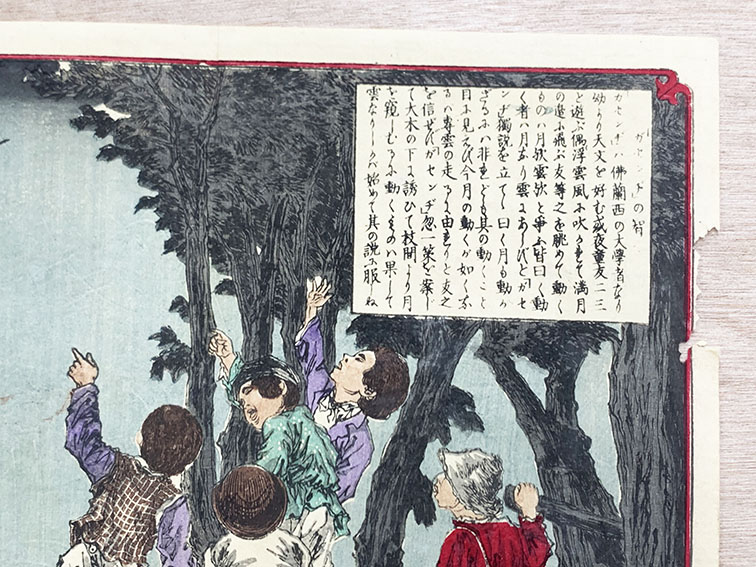 ガセンヂの智
ガセンヂハ佛蘭西の大學者なり
幼より天文を好む或夜童友二三
と遊ぶ偶浮雲風に吹かれて満月
の邊に飛ぶ友等之を眺めて動く
ものハ月歟雲歟と争ふ皆曰く動
く者ハ月なり雲にあらずとガセ
ンヂ獨説を立て曰く月も動か
ざるにハ非れども其の動くこと
目に見えず今月の動くが如くな
るハ専雲の走るに由れりと友之
を信ぜずガセンヂ忽一策を案し
て大木の下に誘ひて枝間より月
を窺しむるに動くものハ果して
雲なりしかバ始めて其の説に服しね